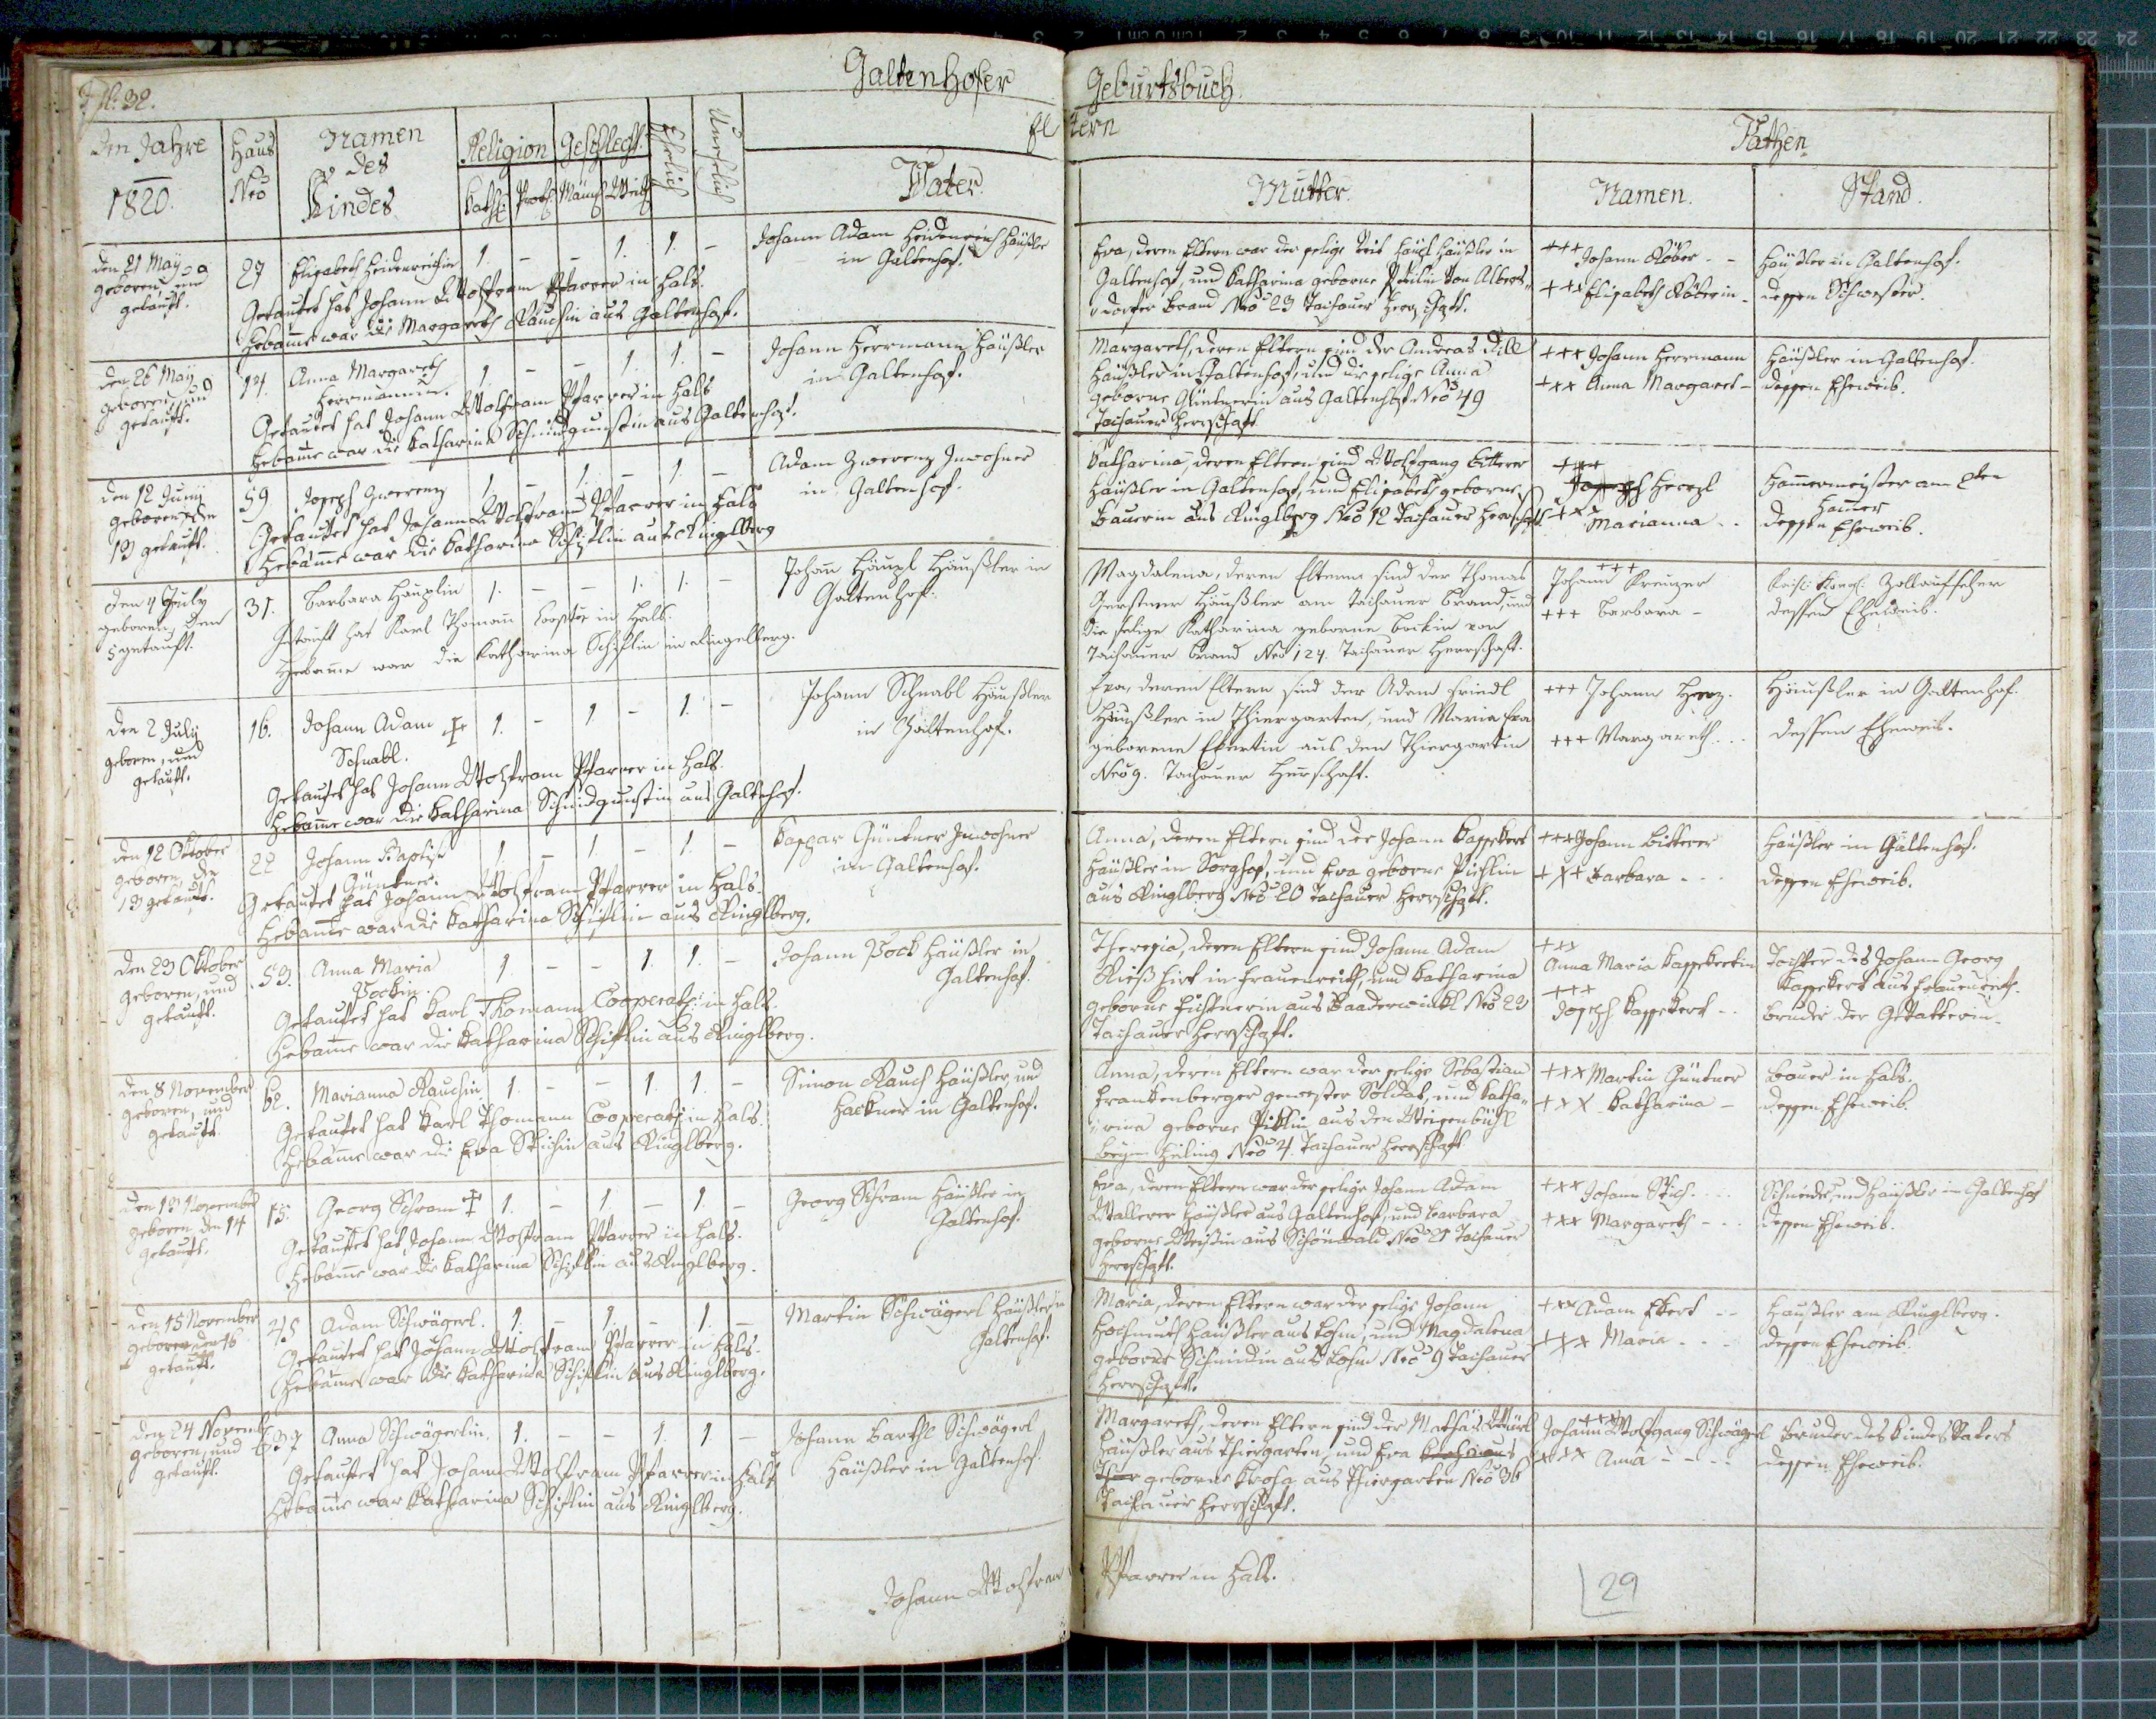 Fol: 32.
Galtenhofer Geburtsbuch.
Im Jahre 1820.
Haus Nro
Namen des Kindes
Religion
Kathl: Proth:
Geschlecht
Mänl: Weibl:
Ehelich
Unehelich
Eltern
Vater.
Mutter.
Pathen
Namen.
Stand.
den 21 May
geboren und
getauft.
27
Elisabeth Heidenreichin
1. - - 1. 1. -
Getaufet hat Johann Wolfram Pfarrer in Hals.
Hebamme war die Margareth Rauchin aus Galtenhof.
Johann Adam Heidenreich Häußler
in Galtenhof.
Eva, deren Eltern war der selige Veit Häupl Häußler in
Galtenhof, und Katharina geborne von Alberts-
dorfer Brand Nro 23 Tachauer Herrschaft.
+++ Johann Röber - -
+++ Elisabeth Röberin -
Häußler in Galtenhof.
dessen Schwester.
den 26 May
geboren, und
getauft.
14.
Anna Margareth
Herrmannin.
1 - - 1. 1. -
Getaufet hat Johann Wolfram Pfarrer in Hals
Hebamme war die Katharina Schmidgunstin aus Galtenhof.
Johann Herrmann Häußler
in Galtenhof.
Margareth, deren Eltern sind der Andreas Dill
Häußler in Galtenhof, und die selige Anna
geborne Güntnerin aus Galtenhof Nro 49
Tachauer Herrschaft
+++ Johann Herrmann
+xx Anna Margaret -
Häußler in Galtenhof.
dessen Eheweib.
den 12 Juny
geboren den
13 getauft.
59.
Joseph Zwerenz
1. - 1. - 1. -
Getaufet hat Johann Wolfram Pfarrer in Hals
Hebamme war die Katharina Schiftlin aus Ringlberg
Adam Zwerenz Inwohner
in Galtenhof.
Katharina, deren Eltern sind Wolfgang Bitterer
Häußler in Galtenhof, und Elisabeth geborne
Bauerin aus Ringlberg Nro 12 Tachauer Herrschaft.
+++
Joseph Heropl
+xx Marianna - -
Hammermeister am 2ten
Hammer
dessen Eheweib.
den 4 July
geboren, den
5 getauft.
31.
Barbara Häuplin
1. - - 1. 1. -
Getauft hat Karl Thomann in Hals.
Hebamme war die Katharina Schiftlin in Ringelberg.
Johann Häupl Häußler in
Galtenhof.
Magdalena, deren Eltern sind der Thomas
Gerstner Häußler am Tachauer Brand, und
die selige Katharina geborne Böckin von
Tachauer Brand Nro 124. Tachauer Herrschaft.
+++
Johann Kreuzer
+++ Barbara -
Zollaufseher
dessen Eheweib.
den 2 July
geboren, und
getauft.
16.
Johann Adam ‡
Schnabl.
1. - 1 - 1. -
Getaufet hat Johann Wolfram Pfarrer in Hals.
Hebamme war die Katharina Schmidgunstin aus Galtenhof.
Johann Schnabl Häußler
in Galtenhof.
Eva, deren Eltern sind der Adam Friedl
Häußler in Thiergarten, und Maria Eva
geborene Ekertin aus den Thiergartin
Nro 9. Tachauer Herrschaft.
+++ Johann Herz.
+++ Margareth. . .
Häußler in Galtenhof.
dessen Eheweib.
den 12 Oktober
geboren, den
13 getauft.
22
Johann Baptist
Güntner.
1. - 1 - 1. -
Getaufet hat Johann Wolfram Pfarrer in Hals.
Hebamme war die Katharina Schiftlin aus Ringlberg.
Kaspar Güntner Inwohner
in Galtenhof.
Anna, deren Eltern sind der Johann Kappekert
Häußler in Sorghof, und Eva geborne Pischlin
aus Ringlberg Nro 20 Tachauer Herrschaft.
+++ Johann Bitterer
+x+ Barbara - - -
Häußler in Galtenhof.
dessen Eheweib.
den 23 Oktober
geboren, und
getauft.
53.
Anna Maria
Pockin.
1. - - 1. 1. -
Getaufet hat Karl Thomann Cooperat: in Hals.
Hebamme war die Katharina Schiftlin aus Ringlberg.
Johann Pock Häußler in
Galtenhof.
Theresia, deren Eltern sind Johann Adam
Rieß Hirt in Frauenreith, und Katharina
geborne aus Baaderwinkl Nro 23
Tachauer Herrschaft.
+xx
Anna Maria Kappekertin
+++
Joseph Kappekert - -
Tochter des Johann Georg
Kappekert aus Frauenreith.
Bruder der Gevatterin.
den 8 November
geboren, und
getauft.
62.
Marianna Rauchin
1. - - 1. 1. -
Getaufet hat Karl Thomann Cooperat: in Hals.
Hebamme war die Eva Stichin aus Ringlberg.
Simon Rauch Häußler und
Hackner in Galtenhof.
Anna, deren Eltern war der selige Sebastian
Frankenberger gewester Soldat, und Katha-
rina geborne Pittlin aus den
Nro 4. Tachauer Herrschaft
+xx Martin Güntner
+xx Katharina -
Bauer in Hals.
dessen Eheweib.
den 13 November
geboren den 14
getauft.
15.
Georg Schram ‡
1. - 1 - 1. -
Getaufet hat Johann Wolfram Pfarrer in Hals.
Hebamme war die Katharina Schiftlin aus Ringlberg.
Georg Schram Häußler in
Galtenhof.
Eva, deren Eltern war der selige Johann Adam
Wallerer Häußler aus Galtenhof, und Barbara
geborne Weißin aus Schönwald Nro 21 Tachauer
Herrschaft.
+xx Johann Stich. . . .
+xx Margareth - - -
Schneider, und Häußler in Galtenhof
dessen Eheweib.
den 15 November
geboren den 16
getauft.
45
Adam Schwägerl.
1. - 1. - 1. -
Getaufet hat Johann Wolfram Pfarrer in Hals.
Hebamme war die Katharina Schiftlin aus Ringlberg.
Martin Schwägerl Häußler in
Galtenhof.
Maria, deren Eltern war der selige Johann
Hochmuth Häußler aus Lohm, und Magdalena
geborne Schmidin aus Lohm Nro 9 Tachauer
Herrschaft.
+xx Adam Ekert - -
+xx Maria - - -
Häußler am Ringlberg.
dessen Eheweib.
den 24 Novemb
geboren, und
getauft.
37
Anna Schwägerlin.
1. - - 1. 1 -
Getaufet hat Johann Wolfram Pfarrer in Hals
Hebamme war Katharina Schiftlin aus Ringlberg.
Johann Barthl Schwägerl
Häußler in Galtenhof.
Margareth, deren Eltern sind der Mathäs
Häußler aus Thiergarten, und Eva
geborne aus Thiergarten Nro 36
Tachauer Herrschaft.
+xx
Johann Wolfgang Schwägerl
xxx Anna - - - -
Bruder des Kindes Vaters
dessen Eheweib.
Johann Wolfram Pfarrer in Hals.
29